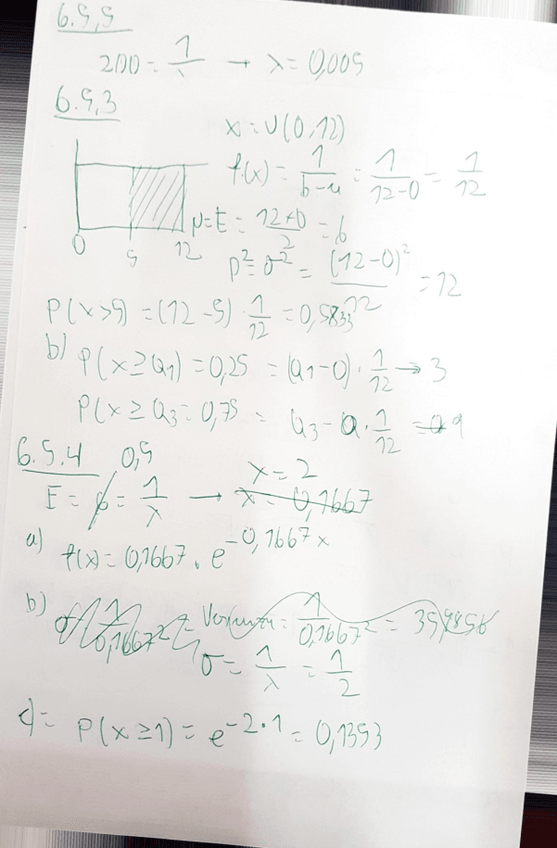 6.5,5
200 = 1/λ → λ = 0,005
6.5,3
x = U(0,12)
f(x) = 1/(b-a) = 1/(12-0) = 1/12
μ = E = (12+0)/2 = 6
0 5 12
D² = σ² = (12-0)²/12 = 12
P(x>5) = (12-5) · 1/12 = 0,5833
b) P(x ≥ Q1) = 0,25 = (Q1-0) · 1/12 → 3
P(x ≥ Q3 = 0,75 = Q3 - 0 · 1/12 = 9
6.5.4 0,5
E = 6 = 1/λ → x = 0,1667
x = 2
a) f(x) = 0,1667 · e^-0,1667x
b) 1/0,1667² = 1/0,1667² = 35,9856
σ = 1/λ = 1/2
c) = P(x ≥ 1) = e^-2·1 = 0,1353